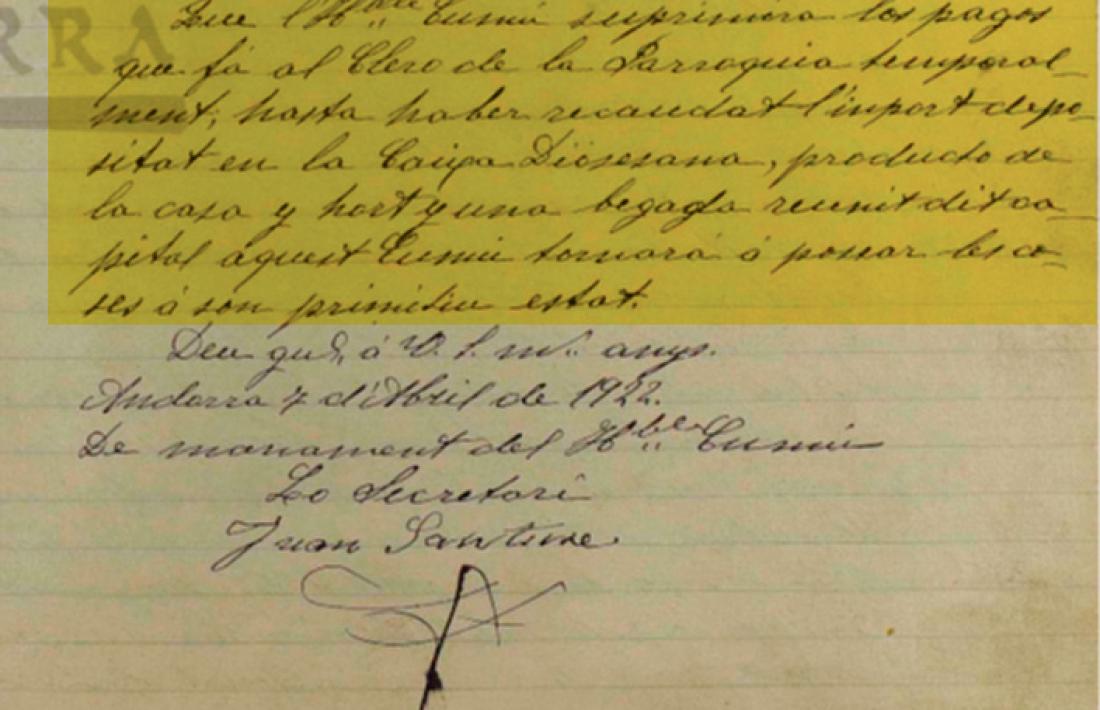 RRA
Que l'Hble Cumú suprimira los pagos
que fá al Clero de la Parroquia temporal-
ment, hasta haber recaudat l'inport depo-
sitat en la Caixa Diosesana, producto de
la casa y hort y una begada reunit dit ca-
pital aquest Cumú tornará á posar les co-
ses á son primitiu estat.
Deu gud. á V. S. ms. anys.
Andorra 7 d'Abril de 1922.
De manament del Hble Cumú
Lo Secretari
Juan Santure